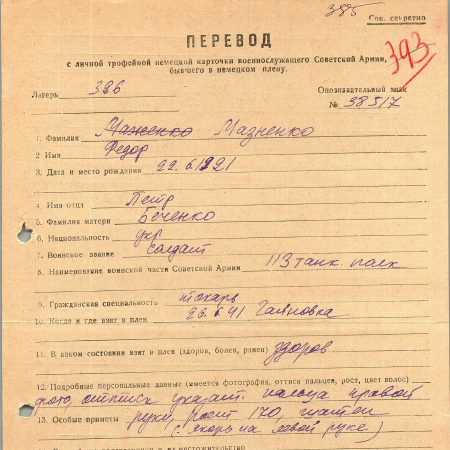 385
Сов. секретно
ПЕРЕВОД
с личной трофейной немецкой карточки военнослужащего Советской Армии,
бывшего в немецком плену.
793
Лагерь 326
Опознавательный знак
№ 58517
1. Фамилия Маженко Мазненко
2 Имя Федор
3. Дата и место рождения 22.6.1921
4. Имя отца Петр
5. Фамилия матери Беченко
6. Национальность укр
7. Воинское звание солдат
8. Наименование воинской части Советской Армии 113 танк. полк
9. Гражданская специальность токарь
10. Когда и где взят в плен 26.6.41 Гайновка
11. В каком состоянии взят в плен (здоров, болен, ранен) здоров
12. Подробные персональные данные (имеется фотография, оттиск пальцев, рост, цвет волос)
фото, оттиск указат. пальца правой
13. Особые приметы руки, рост 170,
(якорь на левой руке)